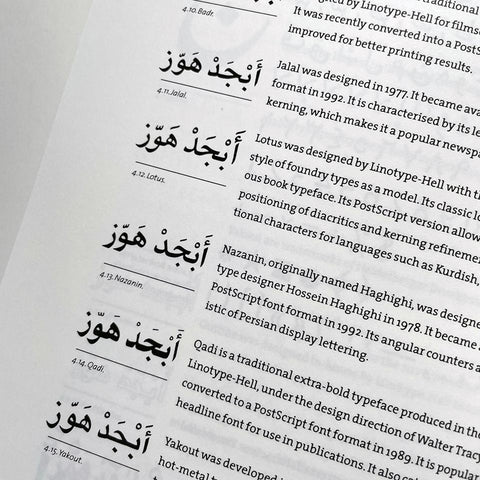 4.10. Badr.
It was recently converted into a PostS
improved for better printing results.
أَبْجَدْ هَوّز
4.11. Jalal.
Jalal was designed in 1977. It became ava
format in 1992. It is characterised by its le
kerning, which makes it a popular newspa
أَبْجَدْ هَوّز
4.12. Lotus.
Lotus was designed by Linotype-Hell with th
style of foundry types as a model. Its classic lo
ous book typeface. Its PostScript version allow
positioning of diacritics and kerning refinemen
tional characters for languages such as Kurdish,
أَبْجَدْ هَوّز
4.13. Nazanin.
Nazanin, originally named Haghighi, was designe
type designer Hossein Haghighi in 1978. It became a
PostScript font format in 1992. Its angular counters a
istic of Persian display lettering.
أَبْجَدْ هَوّز
4.14. Qadi.
Qadi is a traditional extra-bold typeface produced in the
Linotype-Hell, under the design direction of Walter Tracy
converted to a PostScript font format in 1989. It is popular
headline font for use in publications. It also
أَبْجَدْ هَوّز
4.15. Yakout.
Yakout was developed
hot-metal